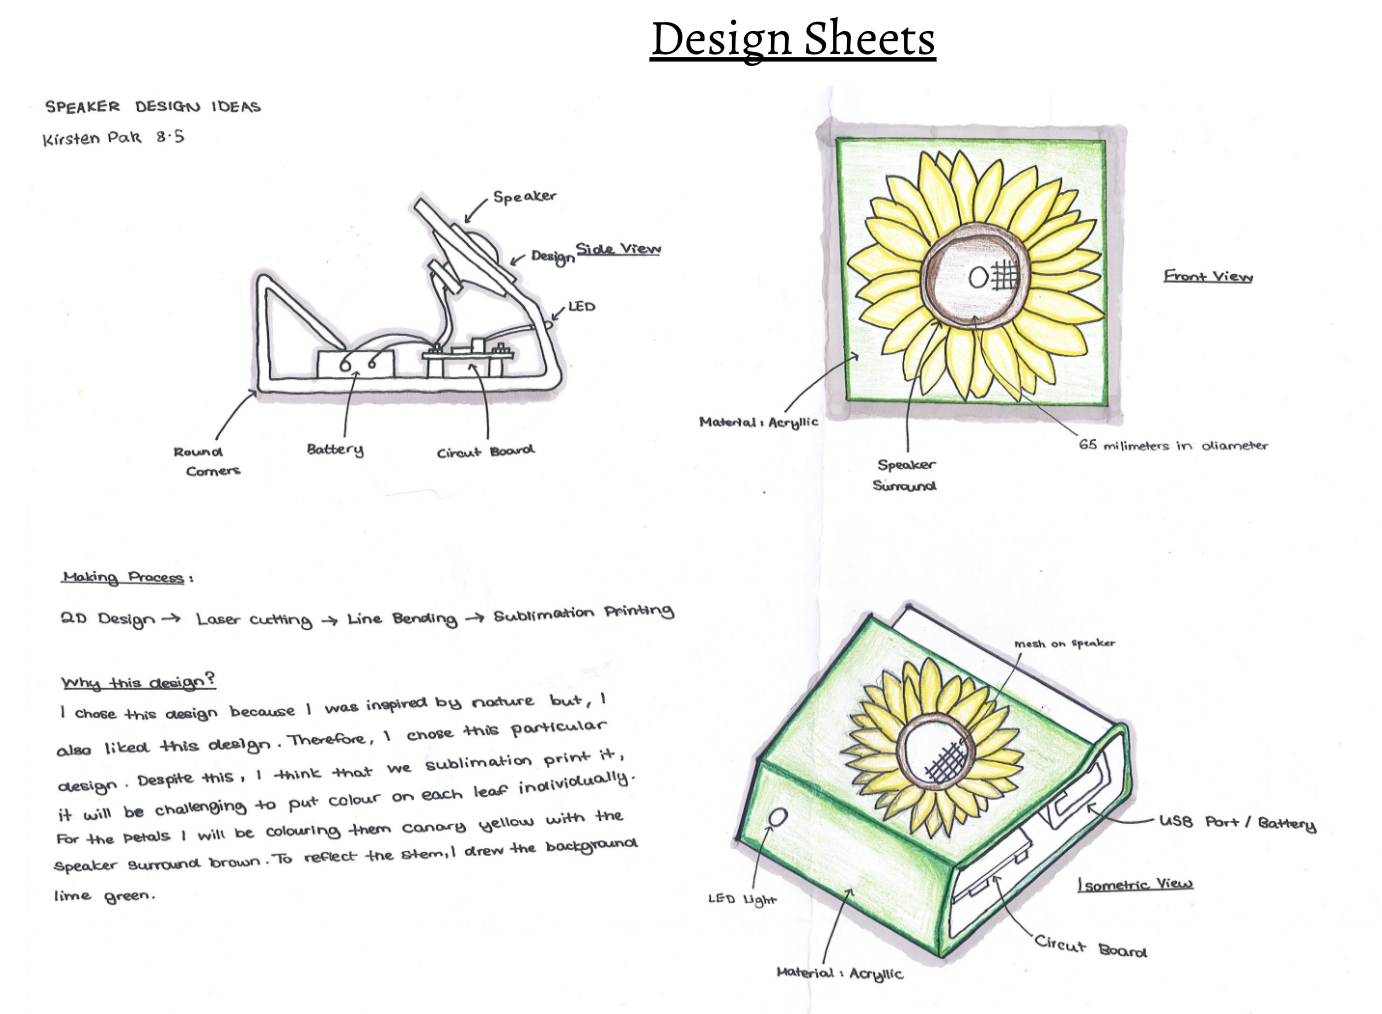 Design Sheets
SPEAKER DESIGN IDEAS
Kirsten Pak 8.5
Speaker
Design
Side View
LED
Round
Corners
Battery
Circut Board
Front View
Material : Acryllic
Speaker
Surround
65 milimeters in diameter
Making Process :
2D Design → Laser cutting → Line Bending → Sublimation Printing
Why this design?
I chose this design because I was inspired by nature but, I
also liked this design. Therefore, I chose this particular
design. Despite this, I think that we sublimation print it,
it will be challenging to put colour on each leaf individually.
For the petals I will be colouring them canary yellow with the
speaker surround brown. To reflect the stem, I drew the background
lime green.
mesh on speaker
USB Port / Battery
Isometric View
LED Light
Circut Board
Material : Acryllic